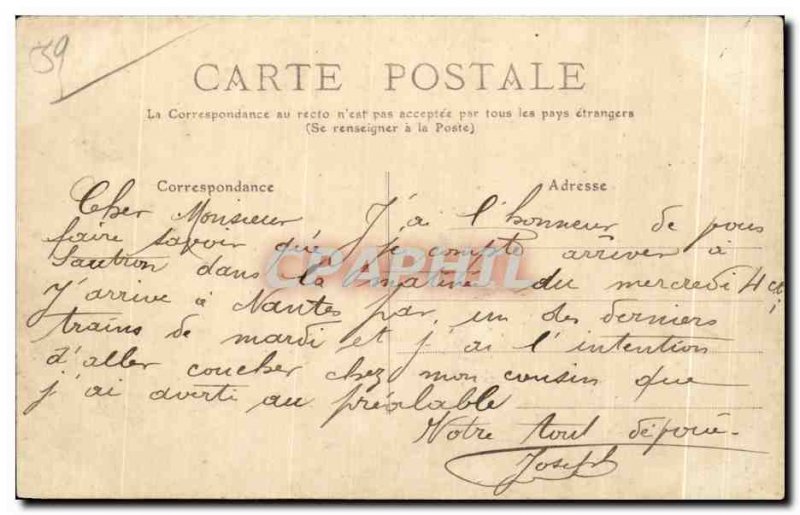 39
CARTE POSTALE
La Correspondance au recto n'est pas acceptée par tous les pays étrangers
(Se renseigner à la Poste)
Correspondance
Adresse
Cher Monsieur J'ai l'honneur de vous
faire savoir que je compte arriver à
Sautron dans la matiné du mercredi 4 ct
J'arrive à Nantes par un des derniers
trains de mardi et j'ai l'intention
d'aller coucher chez mon cousin que
j'ai averti au préalable
Votre tout dévoué
Joseph
CPAPHIL